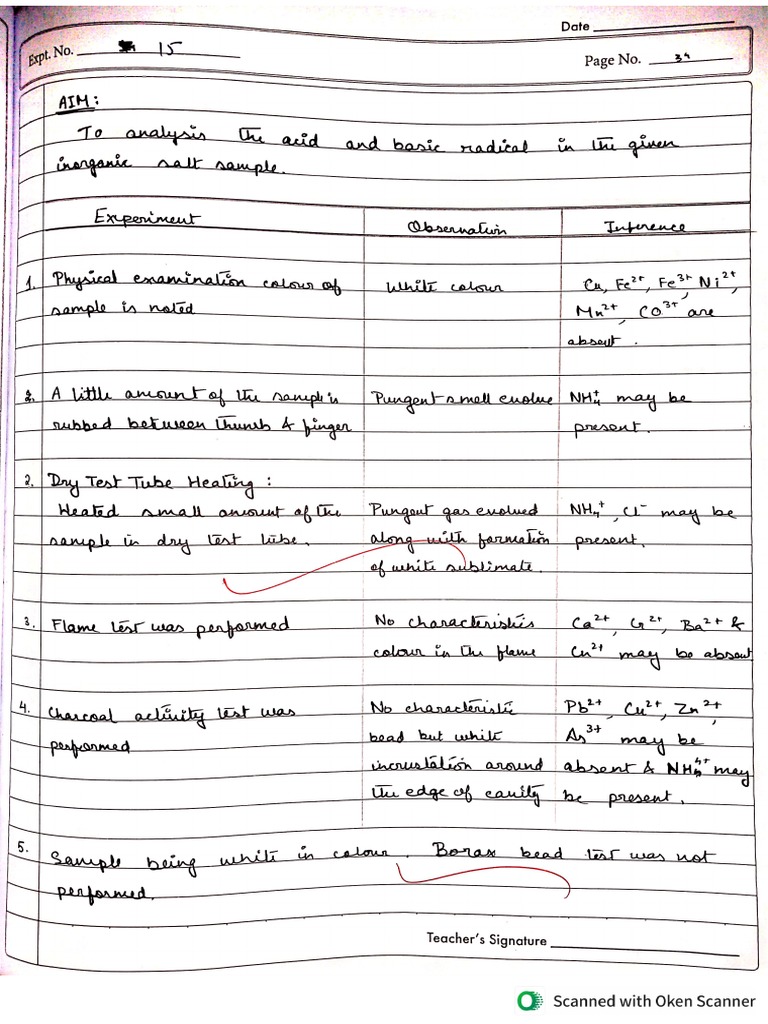 Date
Expt. No. 15
Page No. 34
AIM:
To analysis the acid and basic radical in the given
inorganic salt sample.
Experiment Observation Inference
1. Physical examination colour of White colour Cu, Fe²⁺, Fe³⁺, Ni²⁺,
sample is noted Mn²⁺, CO³⁺ are
absent.
2. A little amount of the sample is Pungent smell evolve NH₄⁺ may be
rubbed between thumb & finger present.
2. Dry Test Tube Heating:
Heated small amount of the Pungent gas evolved NH₄⁺, Cl⁻ may be
sample in dry test tube. along with formation present.
of white sublimate.
3. Flame test was performed No characteristics Ca²⁺, Sr²⁺, Ba²⁺ &
colour in the flame Cu²⁺ may be absent
4. Charcoal activity test was No characteristic Pb²⁺, Cu²⁺, Zn²⁺,
performed bead but white As³⁺ may be
incrustation around absent & NH₄⁺ may
the edge of cavity be present.
5. Sample being white in colour. Borax bead test was not
performed.
Teacher's Signature
Scanned with Oken Scanner